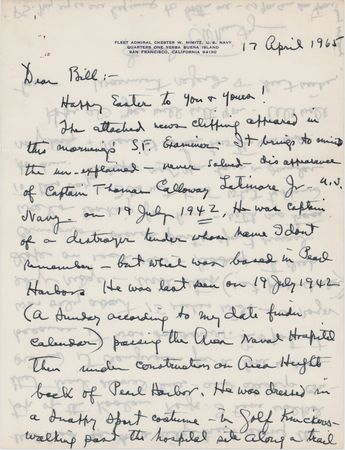 FLEET ADMIRAL CHESTER W. NIMITZ, U.S. NAVY
QUARTERS ONE YERBA BUENA ISLAND
SAN FRANCISCO, CALIFORNIA 94130
17 April 1965
Dear Bill:-
Happy Easter to You & Yours!
The attached news clipping appeared in
this morning's S.F. Examiner. It brings to mind
the un-explained - never solved - disappearance
of Captain Thomas Calloway Latimore Jr. U.S.
Navy - on 19 July 1942. He was captain
of a destroyer tender whose name I dont
remember - but which was based in Pearl
Harbor. He was last seen on 19 July 1942
(a Sunday according to my date finder
calendar) passing the Aiea Naval Hospital
then under construction on Aiea Heights
back of Pearl Harbor. He was dressed in
a snappy sport costume - in Golf Knickers -
walking past the hospital site along a trail